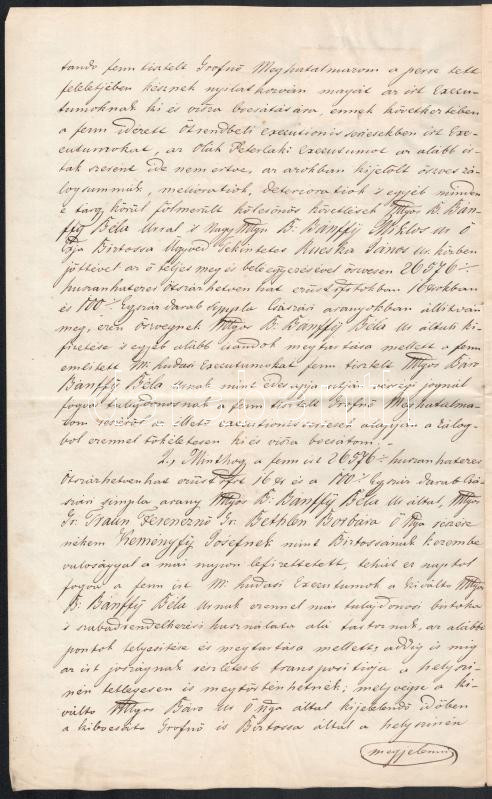 tando fenn tisztelt Grofnő Meghatalmazom a perre tett
feleletjében késznek nyilatkozván magát az írt Execu-
tumoknak ki és vissza bocsátására, ennek következtében
a fenn idézett Ötrendbeli executionis szé​kekben írt Exe-
cutumokat, az Oláh Péterlaki Executumot az alább is-
tak szerént ide nem értve, az azokban kijelölt összves zá-
logsummák, meliorátiok, deteriorátiok 's egyéb minden
e tárgy körül fölmerült kölcsönös követlését Mlgos B. Bán-
ffy Béla Urral 's Nagy Mltgu B. Bánffy Miklos ur Ő
Exja Birtossa Ügyvéd Tekintetes János ur. közben
jöttével az ő teljes meg és beleegyezésével összvesen 26576 –
huszonhatezer ötszázhetven hat ezüst ftokban 16 xrokban
és 100 Egyszáz darab simpla Császári aranyokban állítván
meg, ezen összvegnek Mlgos B. Bánffy Béla Ur általi ki-
fizetése 's egyéb alább irandók megtartása mellett a fenn
említett M: hudasi Executumokat fenn tisztelt Mlgos Báro
Bánffy Béla Urnak mint édes apja után örökségi jognál
fogva tulajdonosnak a fenn tisztelt Grofnő Meghatalma-
zom részéről az illető executionis székek alapján a zálog-
bol ezennel tökéletesen ki és vissza bocsátom. –
2., Minthogy a fenn írt 26576 – huszonhatezer
Ötszázhetvenhat ezüst ftot 16 xr és a 100 Egyszáz darab Csá-
szári simpla arany Mlgos B: Bánffy Béla Ur által, Mlgos
Gr. Traun Ferenczné Gr. Bethlen Borbára Ő Nga részére
nékem Keményfy Josefnek mint Birtossának kezembe
valosággal a mai napon lefizettetett, tehát ez naptol
fogva a fenn írt M: hudasi Executumok a kiváltó Mlgos
B: Bánffy Béla Urnak ezennel már tulajdonosi birtoka
's szabadrendelkezési használata alá tartoznak, az alábbi
pontok teljesítése és megtartása mellett, addig is míg
az írt joszágnak részletesb transpositioja a helyszí-
nén tettlegesen is megtörténhetnék; mely végre a ki-
váltó Mlgos Báro Ur Ő Nga által kijelelendő időben
a kibocsátó Grofnő is Birtossa által a helyszínén
megjelenni